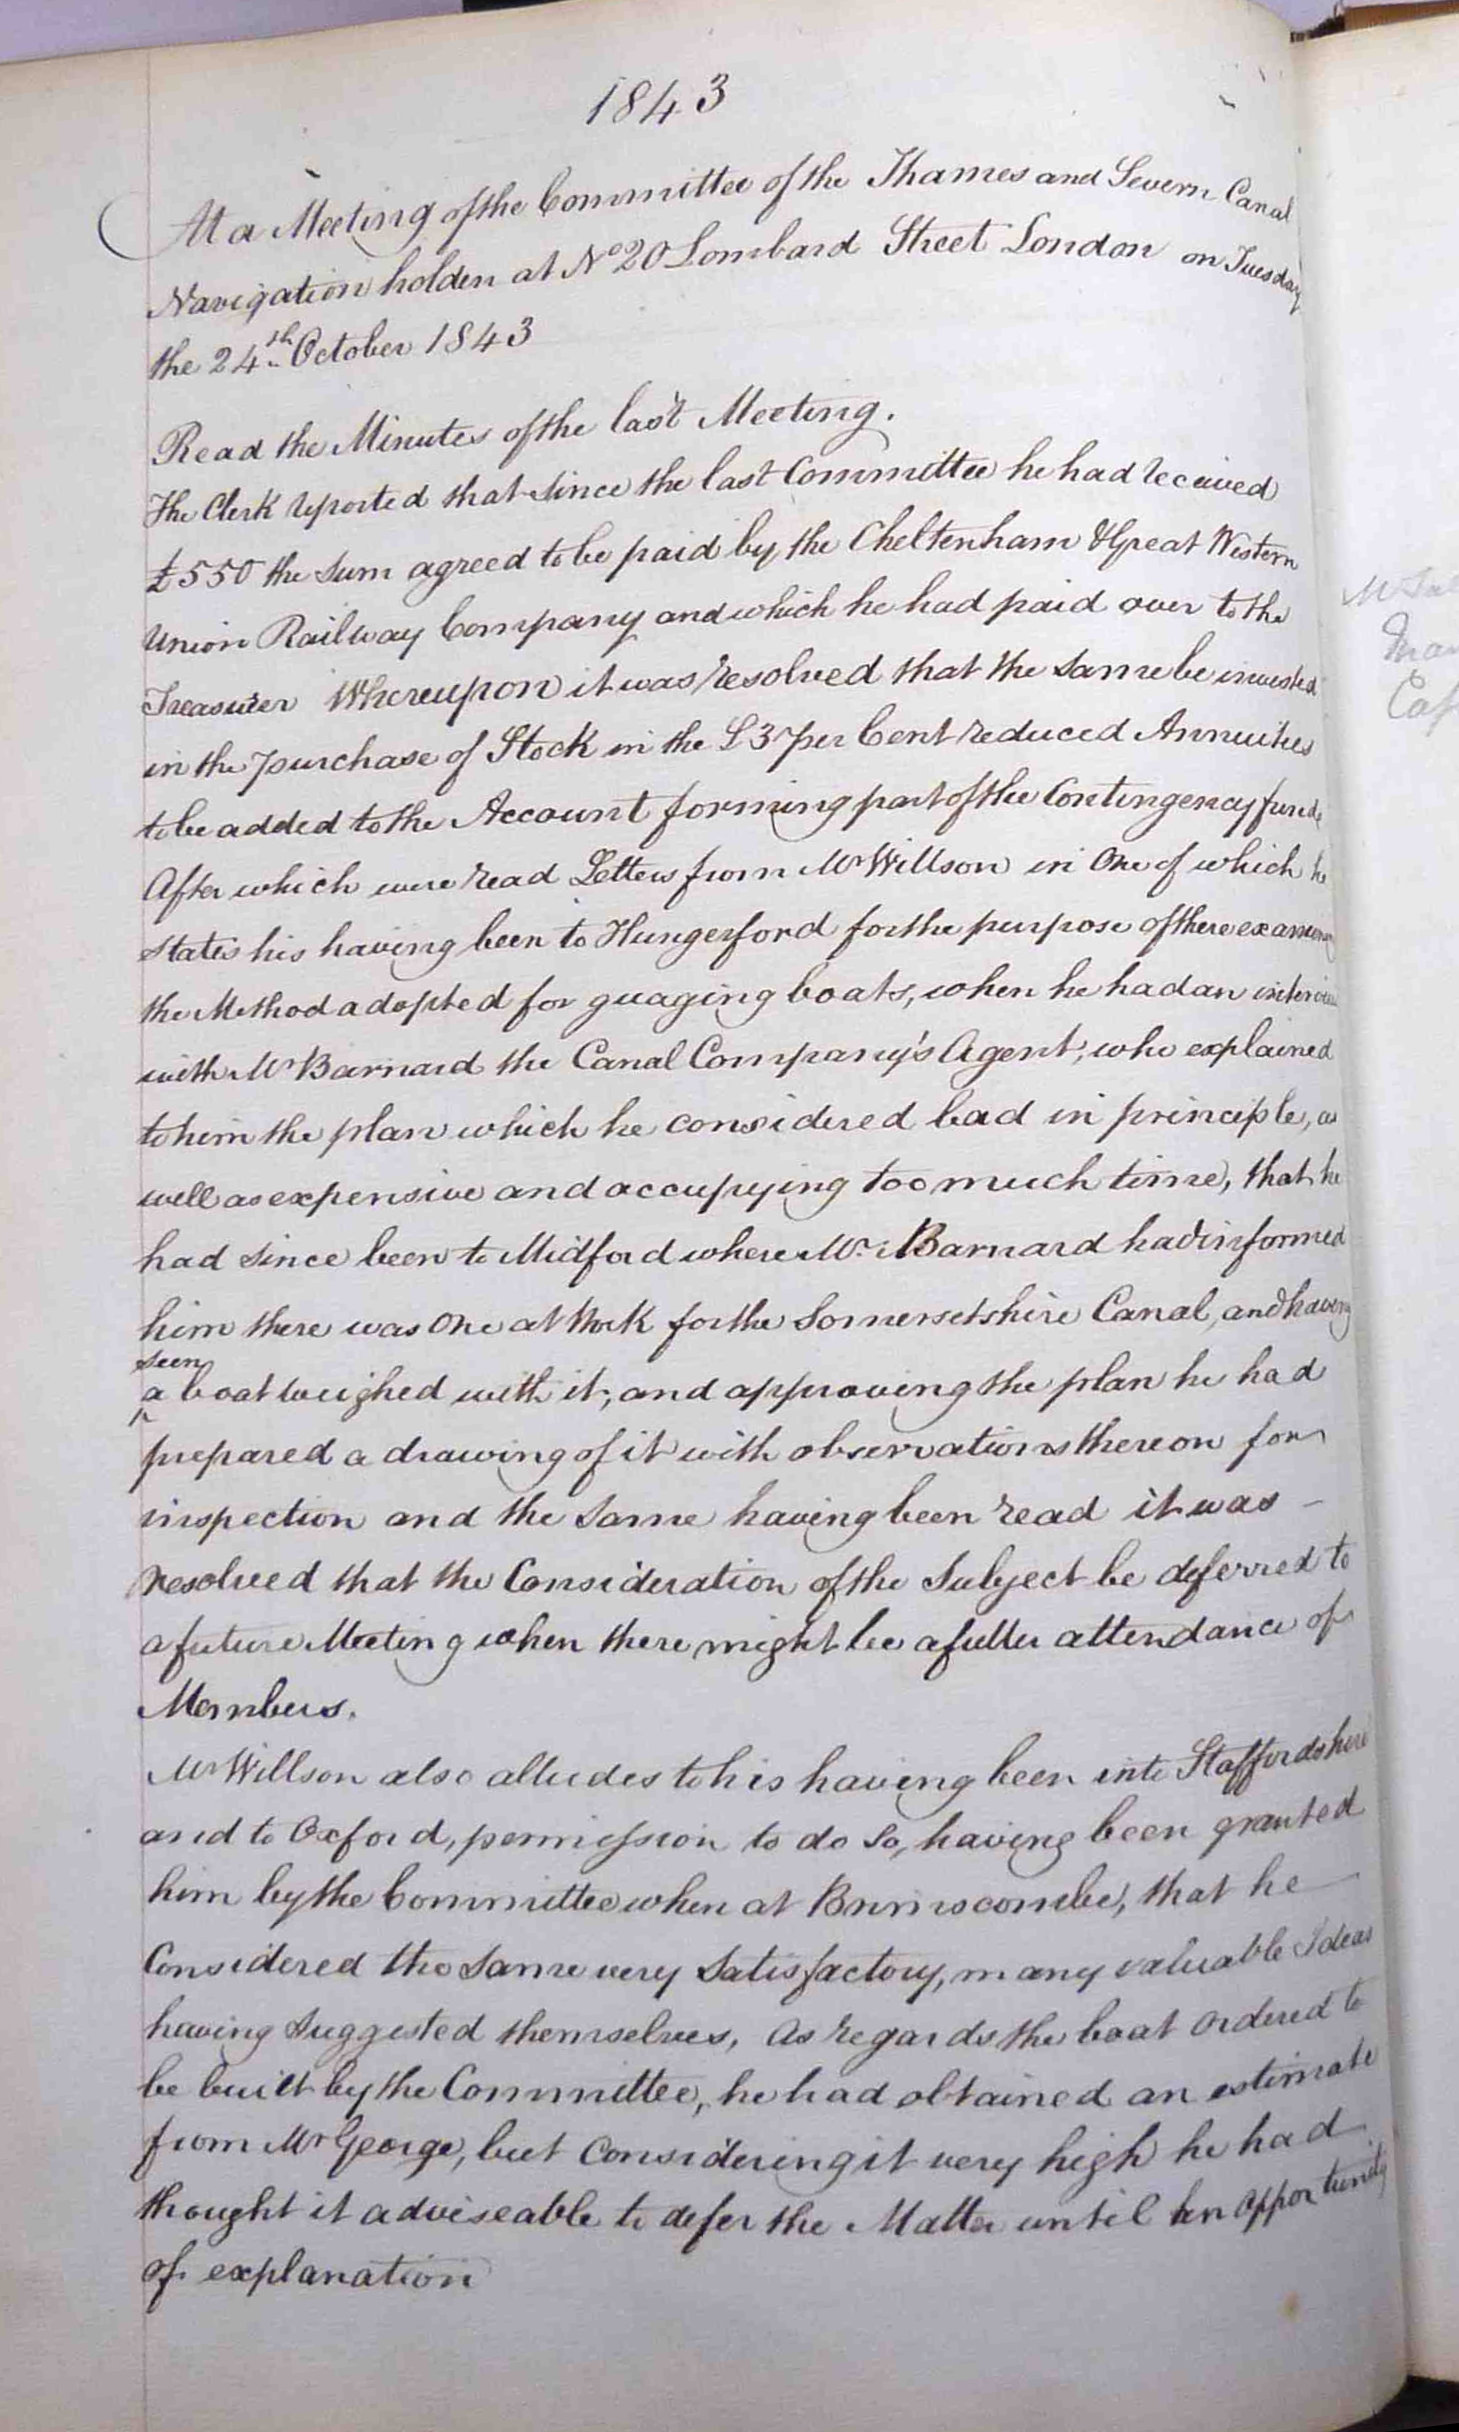 1843
At a Meeting of the Committee of the Thames and Severn Canal
Navigation holden at No 20 Lombard Street London on Tuesday
the 24th October 1843
Read the Minutes of the last Meeting.
The Clerk reported that since the last Committee he had received
£550 the sum agreed to be paid by the Cheltenham & Great Western
Union Railway Company and which he had paid over to the
Treasurer Whereupon it was resolved that the same be invested
in the purchase of Stock in the £3 per Cent reduced Annuities
to be added to the Account forming part of the Contingency fund
After which were read Letters from Mr Willson in One of which he
states his having been to Hungerford for the purpose of there examining
the Method adopted for guaging boats, when he had an interview
with Mr Barnard the Canal Company's Agent, who explained
to him the plan which he considered bad in principle, as
well as expensive and occupying too much time, that he
had since been to Midford where Mr. Barnard had informed
him there was One at Work for the Somersetshire Canal, and having
seen
a boat weighed with it, and approving the plan he had
prepared a drawing of it with observations thereon for
inspection and the same having been read it was –
resolved that the Consideration of the Subject be deferred to
a future Meeting when there might be a fuller attendance of
Members.
Mr Willson also alludes to his having been into Staffordshire
and to Oxford, permission to do so, having been granted
him by the Committee when at Brimscombe, that he
Considered the same very satisfactory, many valuable Ideas
having suggested themselves, As regards the boat ordered to
be built by the Committee, he had obtained an estimate
from Mr George, but Considering it very high he had
thought it adviseable to defer the Matter until an opportunity
of explanation